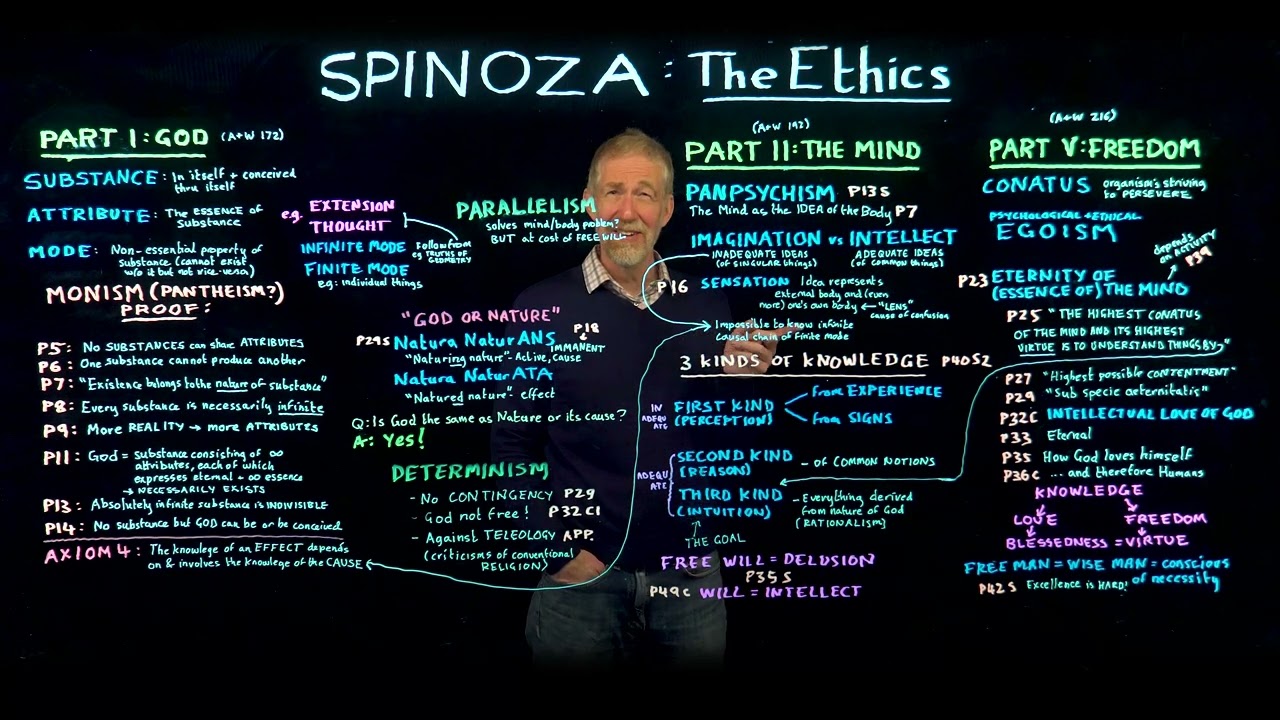 SPINOZA: The Ethics
PART I: GOD (A+W 172)
SUBSTANCE: In itself + conceived
thru itself
ATTRIBUTE: The ESSENCE of
Substance
MODE: Non-essential property of
substance (cannot exist
w/o it but not vice-versa)
MONISM (PANTHEISM?)
PROOF:
P5: No SUBSTANCES can share ATTRIBUTES
P6: One substance cannot produce another
P7: "Existence belongs to the nature of substance"
P8: Every substance is necessarily infinite
P9: More REALITY → more ATTRIBUTES
P11: God = Substance consisting of ∞
attributes, each of which
expresses eternal + ∞ essence
→ NECESSARILY EXISTS
P13: Absolutely infinite substance is INDIVISIBLE
P14: No substance but GOD can be or be conceived
AXIOM 4: The knowlege of an EFFECT depends
on & involves the knowlege of the CAUSE
e.g. EXTENSION
THOUGHT
INFINITE MODE
FINITE MODE
eg: individual things
Follow from
eg TRUTHS OF
GEOMETRY
PARALLELISM
solves mind/body problem?
BUT at cost of FREE WILL
"GOD OR NATURE"
P29S Natura NaturANS
P18
IMMANENT
"Naturing nature" - Active, cause
Natura NaturATA
"Natured nature" - effect
Q: Is God the same as Nature or its cause?
A: Yes!
DETERMINISM
- No CONTINGENCY P29
- God not free! P32C1
- Against TELEOLOGY APP.
(criticisms of conventional
RELIGION)
(A+W 192)
PART II: THE MIND
PANPSYCHISM P13S
The Mind as the IDEA of the Body P7
IMAGINATION vs INTELLECT
INADEQUATE IDEAS
(of SINGULAR things)
ADEQUATE IDEAS
(of COMMON things)
P16 SENSATION Idea represents
external body and (even
more) one's own body ← "LENS"
cause of confusion
Impossible to know infinite
causal chain of finite mode
3 KINDS OF KNOWLEDGE P40S2
INADEQUATE
FIRST KIND
(PERCEPTION)
from EXPERIENCE
from SIGNS
ADEQUATE
SECOND KIND
(REASON)
- OF COMMON NOTIONS
THIRD KIND
(INTUITION)
- Everything derived
from nature of God
(RATIONALISM)
THE GOAL
FREE WILL = DELUSION
P35S
P49C WILL = INTELLECT
(A+W 216)
PART V: FREEDOM
CONATUS organism's striving
to PERSEVERE
PSYCHOLOGICAL + ETHICAL
EGOISM
depends
on ACTIVITY
P39
P23 ETERNITY OF
(ESSENCE OF) THE MIND
P25 "THE HIGHEST CONATUS
OF THE MIND AND ITS HIGHEST
VIRTUE IS TO UNDERSTAND THINGS BY"
P27 "Highest possible CONTENTMENT"
P29 "Sub specie aeternitatis"
P32C INTELLECTUAL LOVE OF GOD
P33 Eternal
P35 How God loves himself
P36C ... and therefore Humans
KNOWLEDGE
LOVE FREEDOM
BLESSEDNESS = VIRTUE
FREE MAN = WISE MAN = conscious
of necessity
P42S Excellence is HARD!